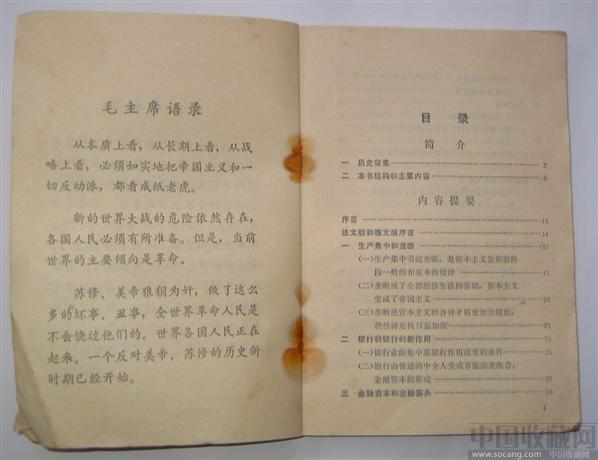 毛主席语录
从本质上看，从长期上看，从战
略上看，必须如实地把帝国主义和一
切反动派，都看成纸老虎。
新的世界大战的危险依然存在，
各国人民必须有所准备。但是，当前
世界的主要倾向是革命。
苏修、美帝狼狈为奸，做了这么
多的坏事、丑事，全世界革命人民是
不会饶过他们的。世界各国人民正在
起来。一个反对美帝、苏修的历史新
时期已经开始。
目录
简介
一 历史背景 2
二 本书结构和主要内容 8
内容提要
序言 14
法文版和德文版序言 14
一 生产集中和垄断 17
(一)生产集中引起垄断，是资本主义发展新阶
段一般的和基本的规律
(二)垄断成了全部经济生活的基础，资本主义
变成了帝国主义 20
(三)垄断使资本主义的各种矛盾更加尖锐化，
使经济危机日益加深
二 银行和银行的新作用
(一)银行业的集中是银行作用改变的条件
(二)银行由普通的中介人变成万能的垄断者，
金融资本的形成
三 金融资本和金融寡头
1
中国收藏网
www.socang.com 中国收藏网